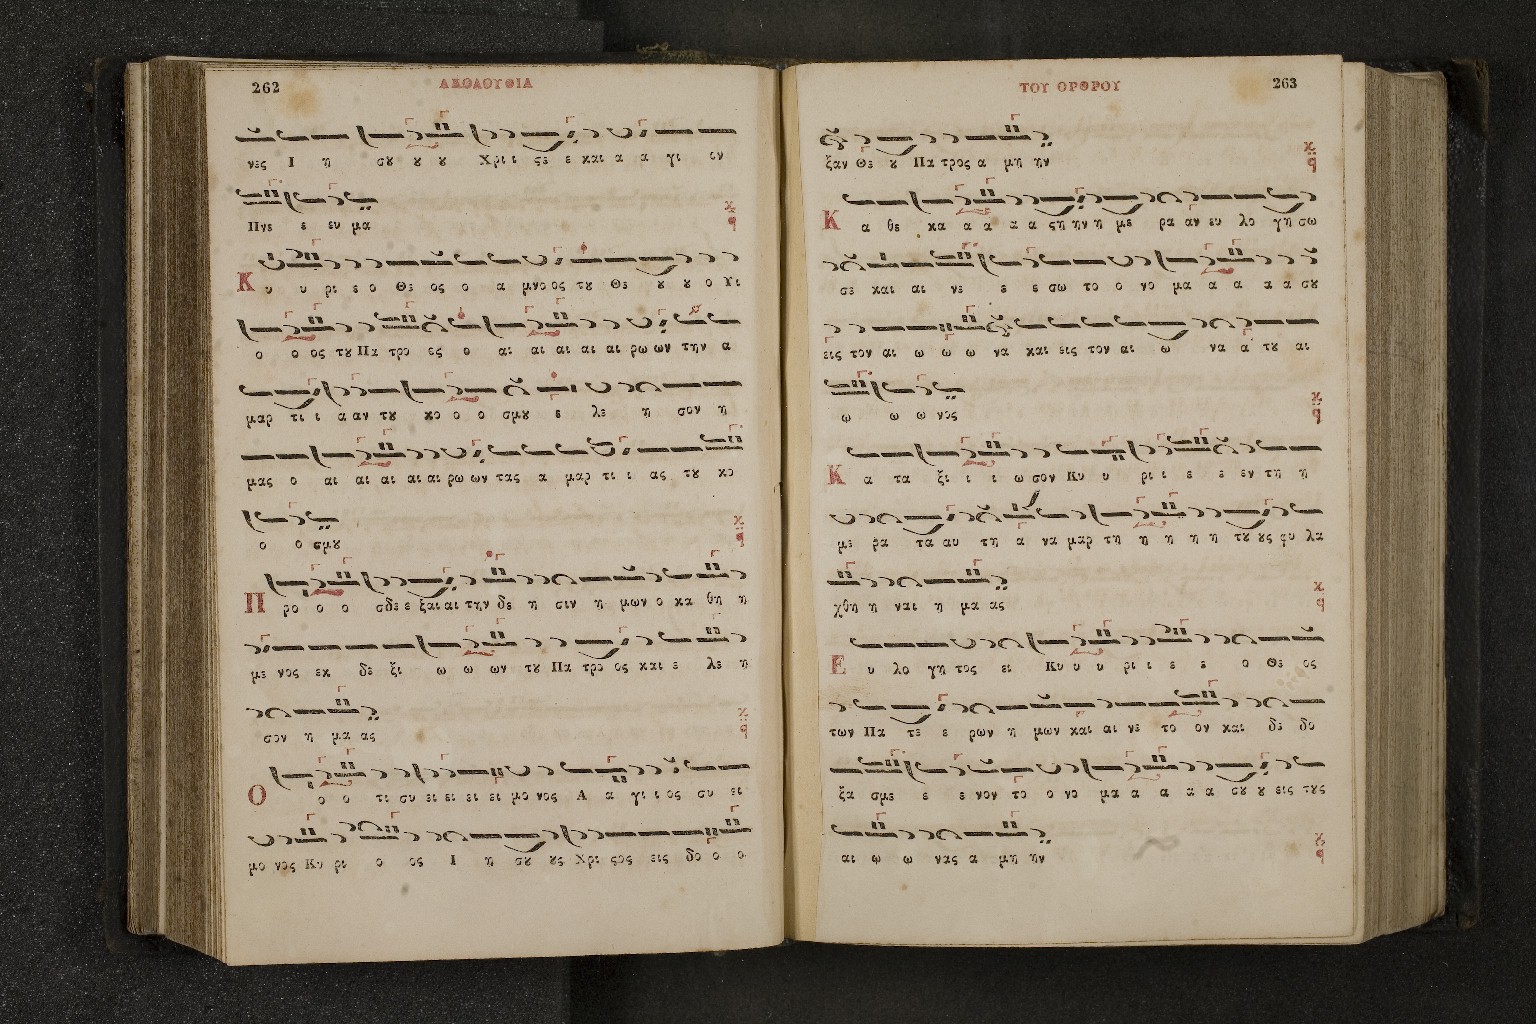 262
ΑΚΟΛΟΥΘΙΑ
νες Ι η σȣ ȣ ȣ Χρι ι ϛε ε και α α γι ον
Πνε ε ευ μα
Κ υ υ ρι ε ο Θε ος ο α μνο ος τȣ Θε ȣ ȣ ο Υι
ο ο ος τȣ Πα τρο ος ο αι αι αι αι αι ρω ων την α
μαρ τι ι α αν τȣ κο ο ο σμȣ ε λε η σον η
μας ο αι αι αι αι αι ρω ων τας α μαρ τι ι ας τȣ κο
ο ο σμȣ
Π ρο ο ο σδε ε ξαι αι την δε η σιν η μων ο κα θη η
με νος εκ δε ξι ω ω ων τȣ Πα τρο ος και ε λε η
σον η μα ας
Ο ο ο τι συ ει ει ει ει μο νος Α α γι ι ος συ ει
μο νος Κυ ρι ο ος Ι η σȣ ȣς Χρι ϛος εις δο ο ο
ΤΟΥ ΟΡΘΡΟΥ
263
ξαν Θε ȣ Πα τρος α μη ην
Κ α θε κα α α α α ϛη ην η με ρα αν ευ λο γη σω
σε και αι νε ε ε σω το ο νο μα α α α α σȣ
εις τον αι ω ω ω να και εις τον αι ω να α τȣ αι
ω ω ω νος
Κ α τα ξι ι ι ω σον Κυ υ ρι ι ε ε εν τη η
με ρα τα αυ τη α να μαρ τη η η η η τȣ ȣς φυ λα
χθη η ναι η μα ας
Ε υ λο γη τος ει Κυ υ υ ρι ι ε ε ο Θε ος
των Πα τε ε ρων η μων και αι νε το ον και δε δο
ξα σμε ε ε νον το ο νο μα α α α α σȣ ȣ εις τȣς
αι ω ω νας α μη ην